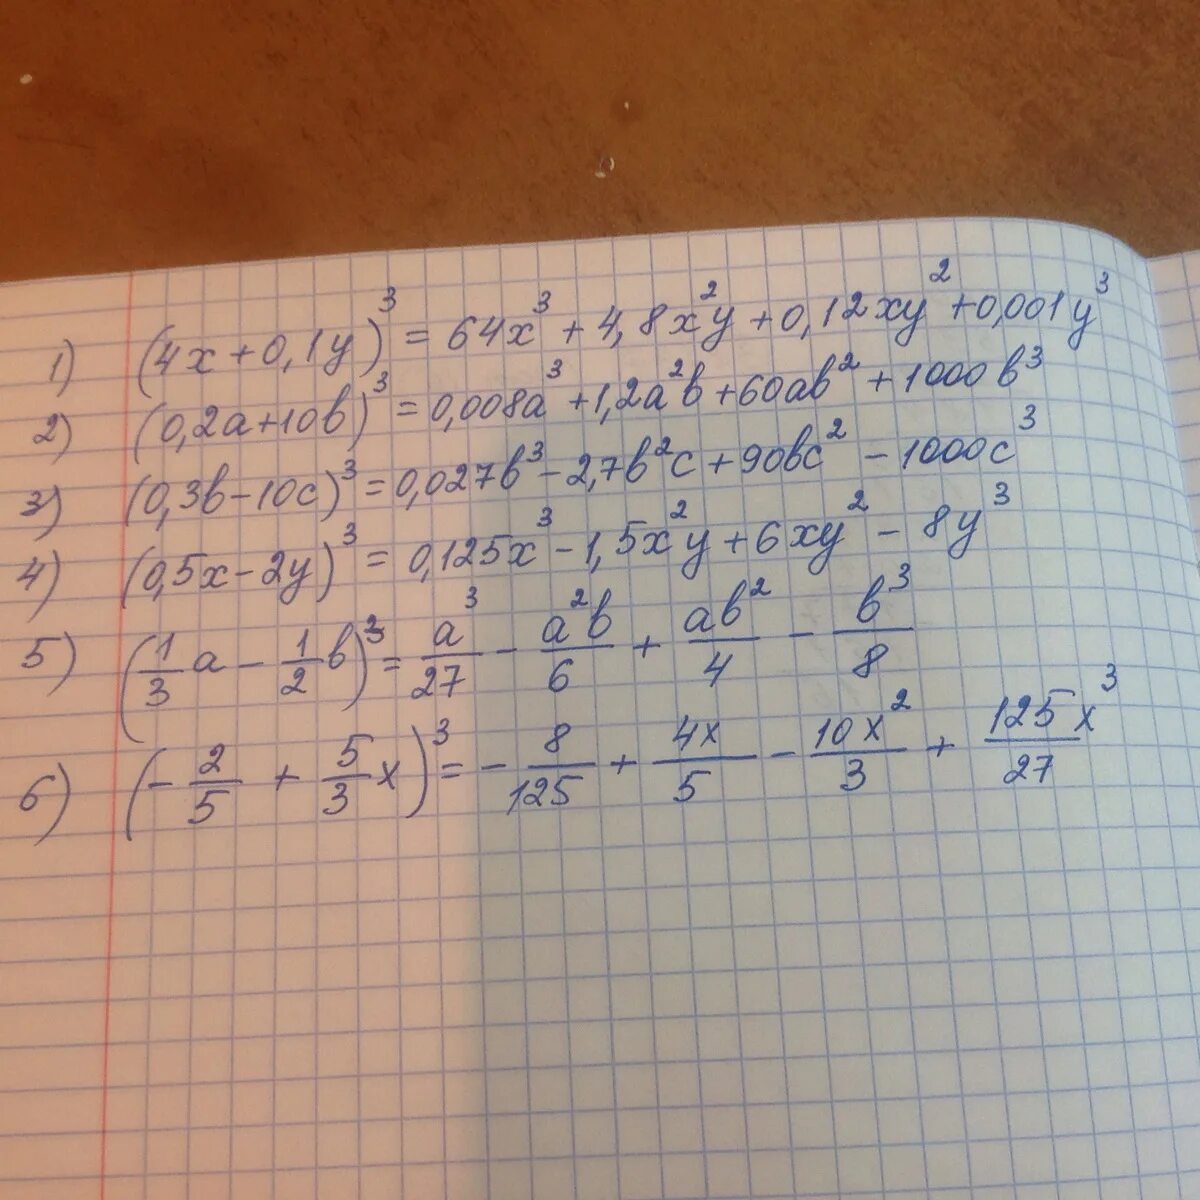 1) (4x+0,1y)³ = 64x³ + 4,8x²y + 0,12xy² + 0,001y³
2) (0,2a+10b)³ = 0,008a³ + 1,2a²b + 60ab² + 1000b³
3) (0,3b-10c)³ = 0,027b³ - 2,7b²c + 90bc² - 1000c³
4) (0,5x-2y)³ = 0,125x³ - 1,5x²y + 6xy² - 8y³
5) (1/3 a - 1/2 b)³ = a³/27 - a²b/6 + ab²/4 - b³/8
6) (-2/5 + 5/3 x)³ = - 8/125 + 4x/5 - 10x²/3 + 125x³/27